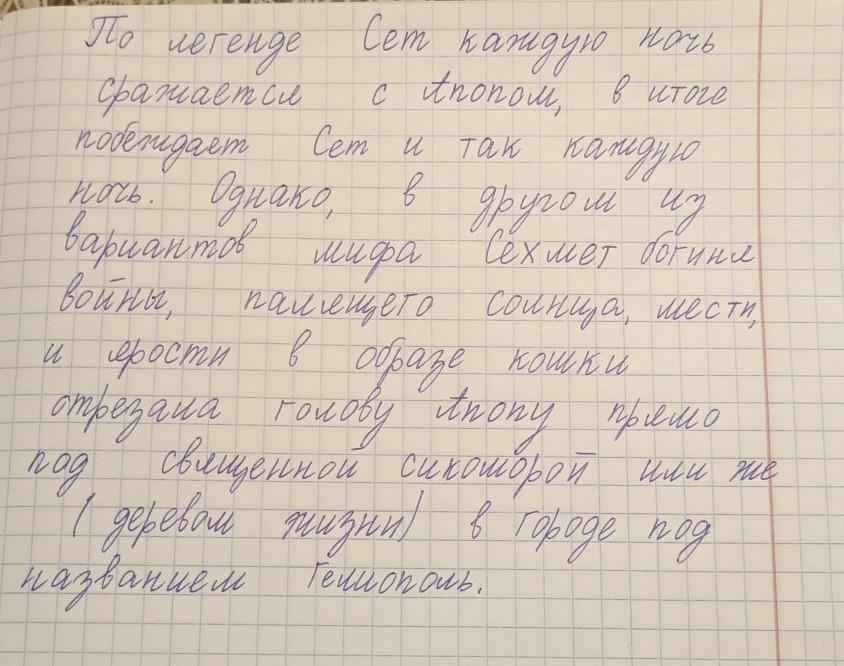 По легенде Сет каждую ночь
сражается с Апопом, в итоге
побеждает Сет и так каждую
ночь. Однако, в другом из
вариантов мифа Сехмет богиня
войны, палящего солнца, мести,
и ярости в образе кошки
отрезала голову Апопу прямо
под священной сикоморой или же
(деревом жизни) в городе под
названием Гелиополь.